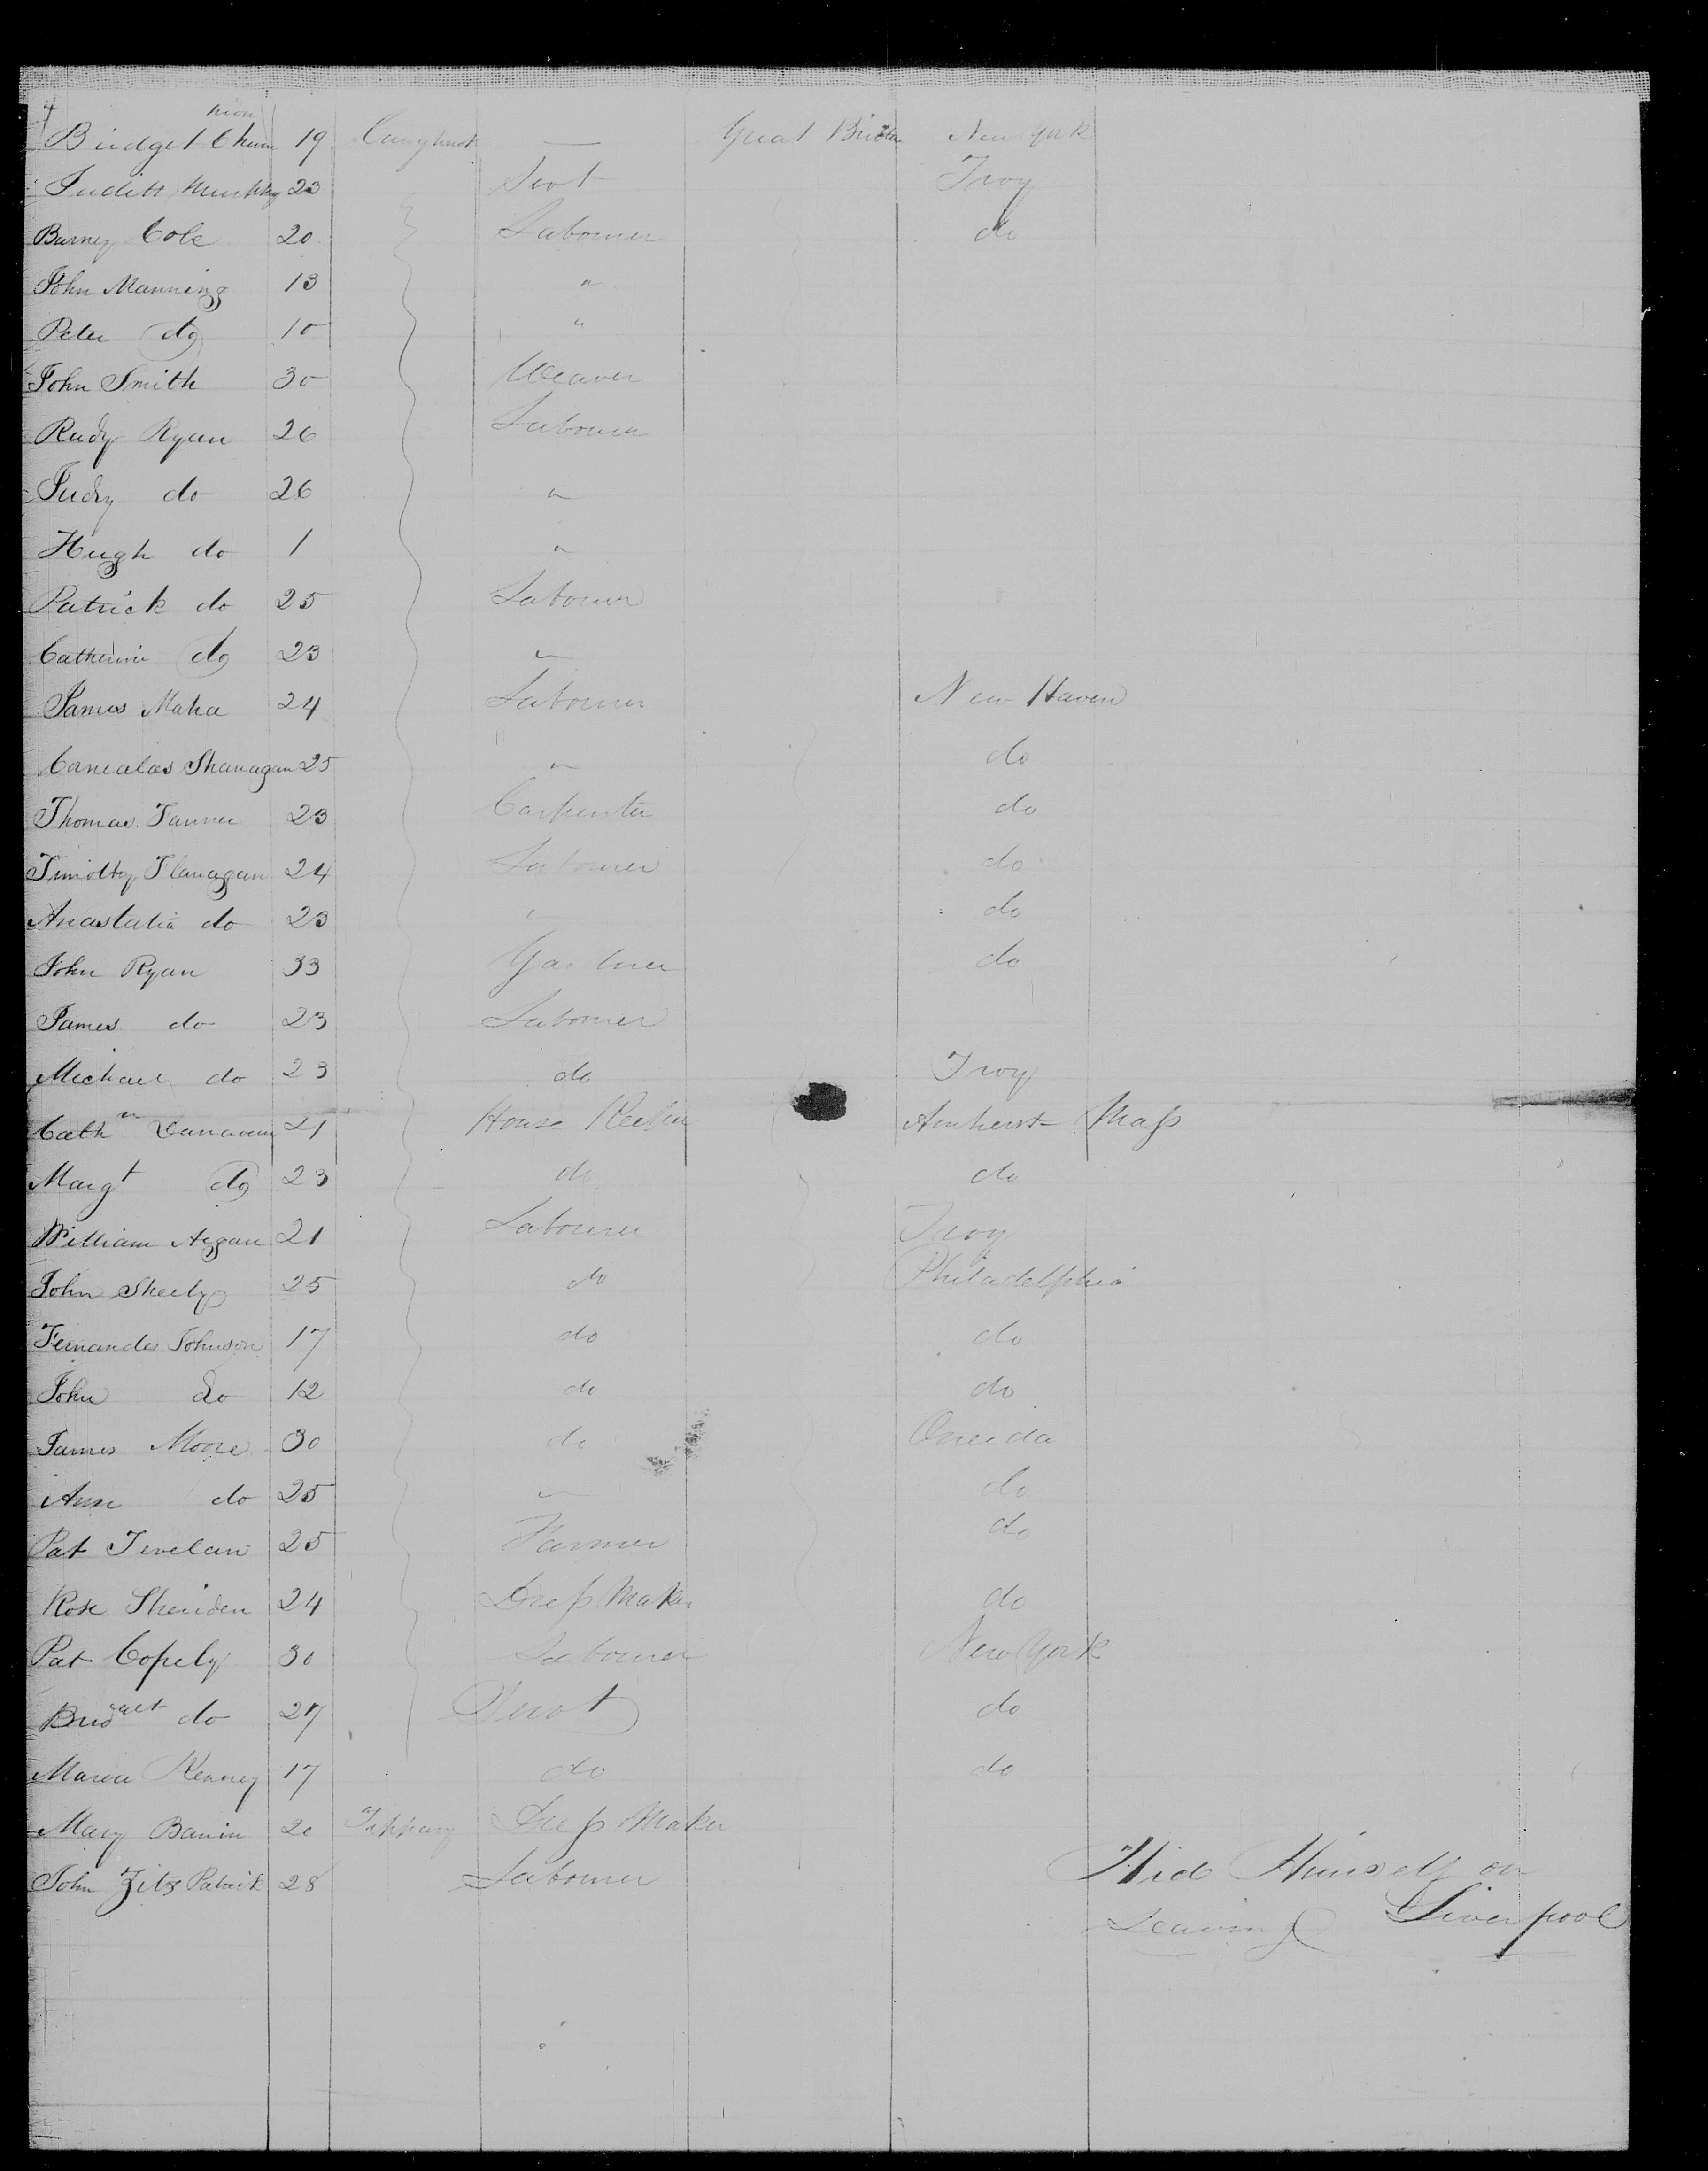 Bridget Chum 19 — Great Britn New York
Judith Murphy 23 Servt Troy
Barney Cole 20 Labourer do
John Manning 13 "
Peter do 10 "
John Smith 30 Weaver
Rudy Ryan 26 Labourer
Judy do 26 "
Hugh do 1 "
Patrick do 25 Labourer
Catherine do 23 "
James Maha 24 Labourer New Haven
Cornealas Shanagan 25 " do
Thomas Tanner 23 Carpenter do
Timothy Flanagan 24 Labourer do
Anastatia do 23 " do
John Ryan 33 Gardner do
James do 23 Labourer
Michael do 23 do Troy
Cathn 21 House Keeper Amherst Mass
Margt do 23 do do
William 21 Labourer Troy
John Sheely 25 do Philadelphia
Fernandes Johnson 17 do do
John do 12 do do
James Moore 30 do Oneida
Ann do 25 " do
Pat 25 Farmer do
Rose Sheriden 24 Dress Maker do
Pat Copely 30 Labourer New York
Bridget do 27 Servt do
Maria Kenney 17 do do
Mary Banin 20 Tippary Dress Maker
John Fitz Patrick 28 Labourer Hid Himself on
Leaving Liverpool